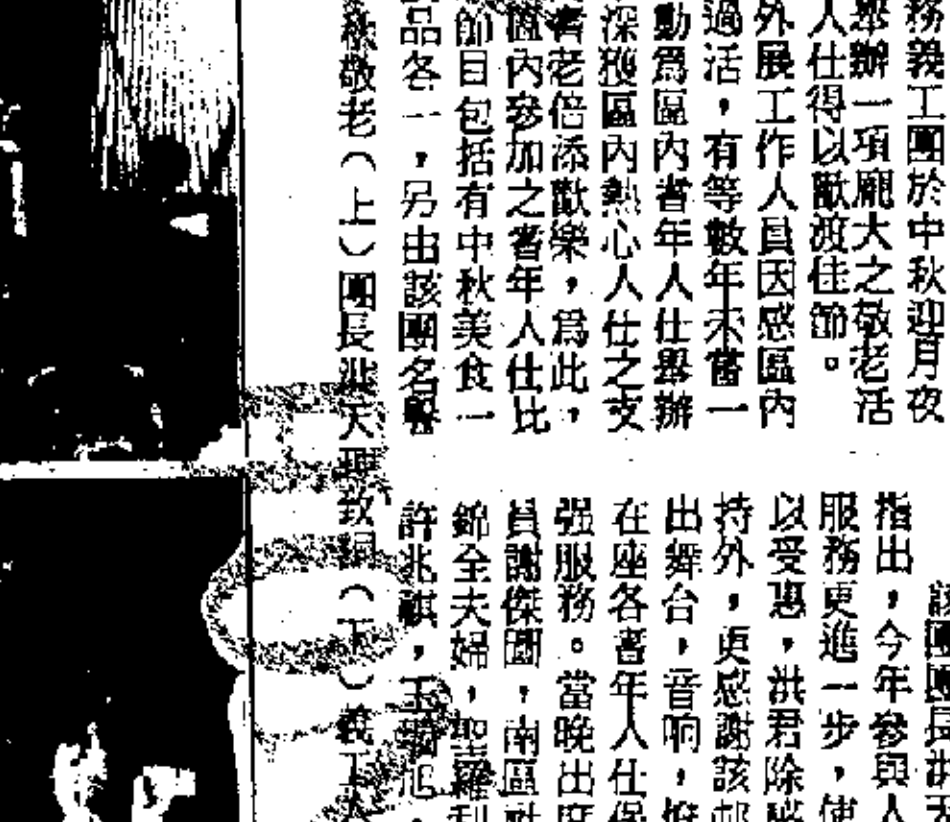 務義工團於中秋迎月夜
舉辦一項龐大之敬老活
人仕得以歡渡佳節。
外展工作人員因感區內
過活，有等數年不嘗一
動為區內耆年人仕舉辦
深獲區內熱心人仕之支
耆老倍添歡樂，為此，
區內參加之耆年人仕比
節目包括有中秋美食一
品各一，另由該團名譽
該團團長洪天
指出，今年參與人
服務更進一步，使
以受惠，洪君除
持外，更感謝該邨
出舞台，音响，
在座各耆年人仕保
强服務。當晚出席
員謝傑聞，南區社
錦全夫婦，聖羅利
許兆祺，王
敬老（上）團長洪天理致詞（下）義工